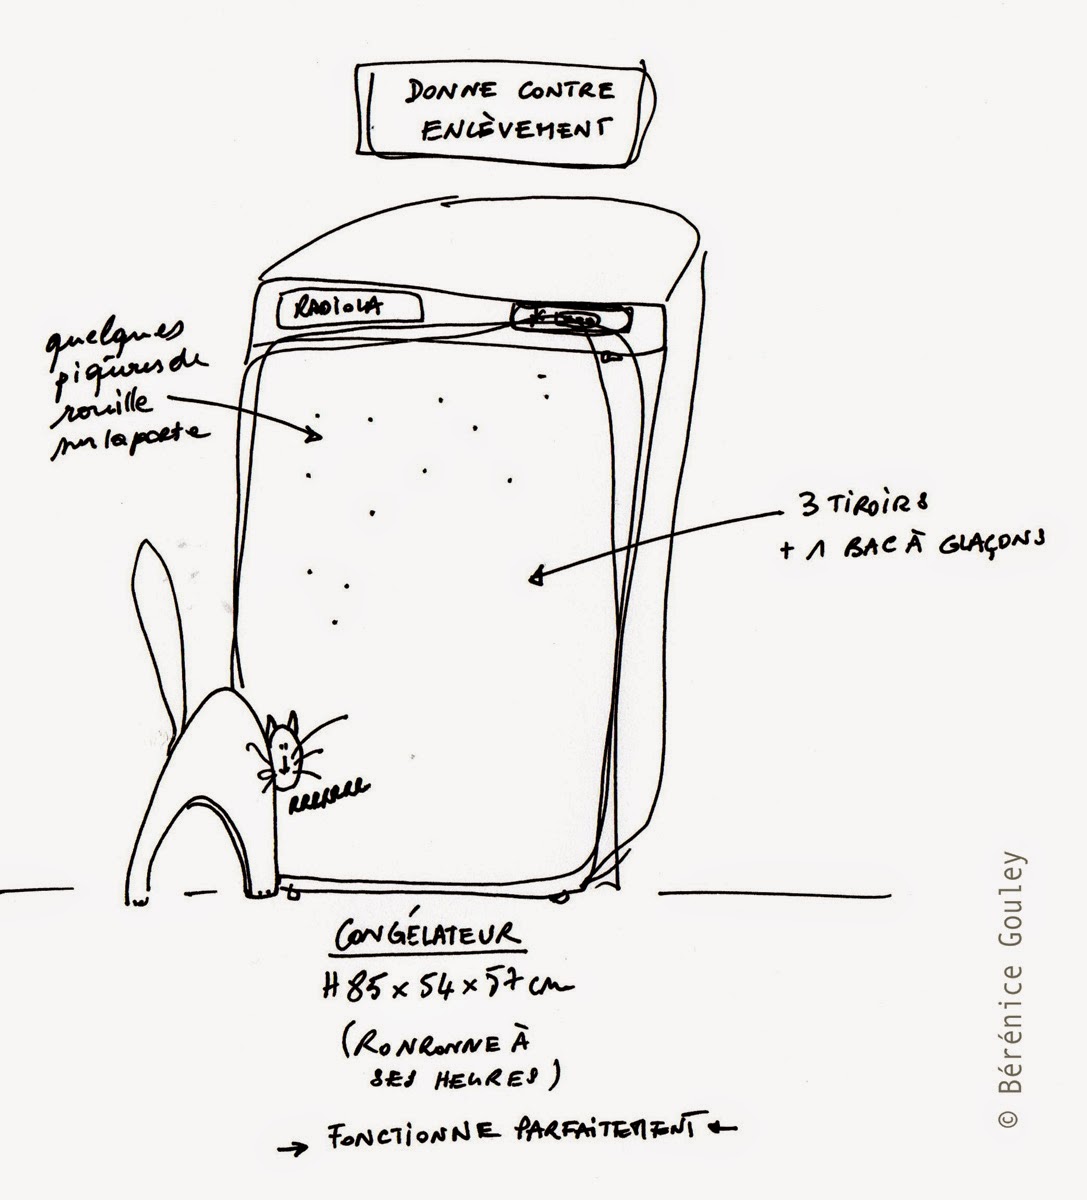 DONNE CONTRE
ENLÈVEMENT
RADIOLA
quelques
piqûres de
rouille
sur la porte
3 TIROIRS
+ 1 BAC À GLAÇONS
RRRRRRR
CONGÉLATEUR
H 85 x 54 x 57 cm
(RONRONNE À
SES HEURES)
→ FONCTIONNE PARFAITEMENT ←
© Bérénice Gouley